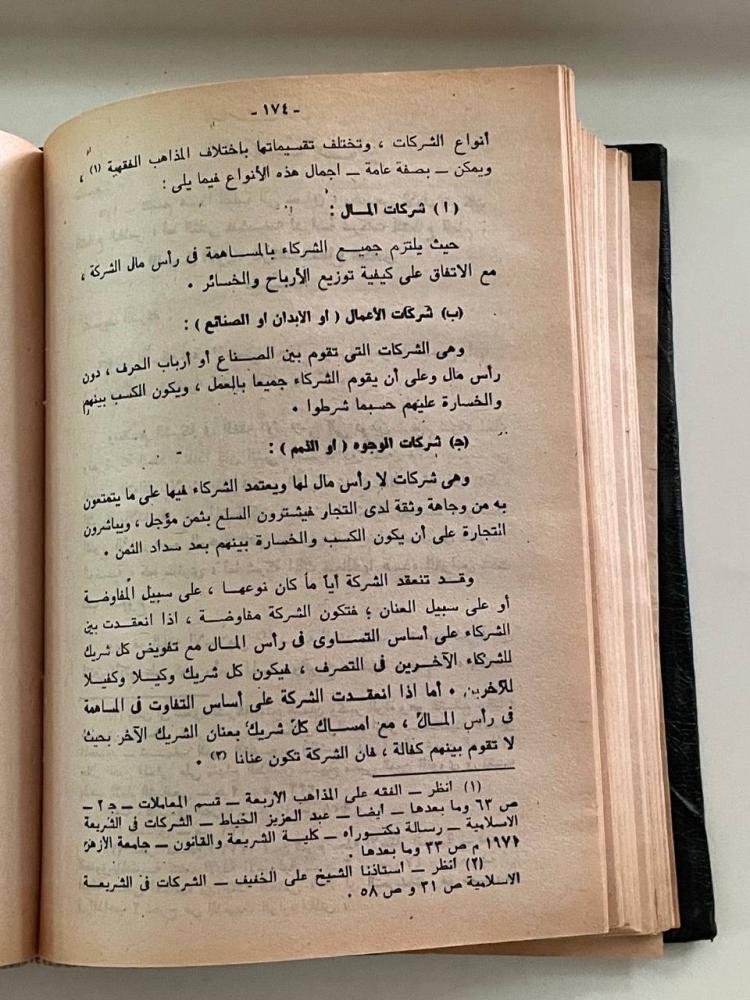 - ١٧٤ -
أنواع الشركات ، وتختلف تقسيماتها باختلاف المذاهب الفقهية (١) ،
ويمكن ــ بصفة عامة ــ اجمال هذه الأنواع فيما يلى :
( ١ ) شركات المال :
حيث يلتزم جميع الشركاء بالمساهمة فى رأس مال الشركة ،
مع الاتفاق على كيفية توزيع الأرباح والخسائر .
(ب) شركات الأعمال ( او الأبدان او الصنائع ) :
وهى الشركات التى تقوم بين الصناع أو أرباب الحرف ، دون
رأس مال وعلى أن يقوم الشركاء جميعا بالعمل ، ويكون الكسب بينهم
والخسارة عليهم حسبما شرطوا .
(ج) شركات الوجوه ( او الذمم ) :
وهى شركات لا رأس مال لها ويعتمد الشركاء فيها على ما يتمتعون
به من وجاهة وثقة لدى التجار فيشترون السلع بثمن مؤجل ، ويباشرون
التجارة على أن يكون الكسب والخسارة بينهم بعد سداد الثمن .
وقد تنعقد الشركة أيا ما كان نوعها ، على سبيل المفاوضة
أو على سبيل العنان ؛ فتكون الشركة مفاوضة ، اذا انعقدت بين
الشركاء على أساس التساوى فى رأس المال مع تفويض كل شريك
للشركاء الآخرين فى التصرف ، فيكون كل شريك وكيلا وكفيلا
للآخرين . أما اذا انعقدت الشركة على أساس التفاوت فى المساهمة
فى رأس المال ، مع امساك كل شريك بعنان الشريك الآخر بحيث
لا تقوم بينهم كفالة ، فان الشركة تكون عنانا (٢) .
(١) انظر ــ الفقه على المذاهب الأربعة ــ قسم المعاملات ــ ج ٢ ــ
ص ٦٣ وما بعدها ــ أيضا ــ عبد العزيز الخياط ــ الشركات فى الشريعة
الاسلامية ــ رسالة دكتوراه ــ كلية الشريعة والقانون ــ جامعة الأزهر
١٩٧١ م ص ٣٣ وما بعدها .
(٢) انظر ــ استاذنا الشيخ على الخفيف ــ الشركات فى الشريعة
الاسلامية ص ٣١ و ص ٥٨ .